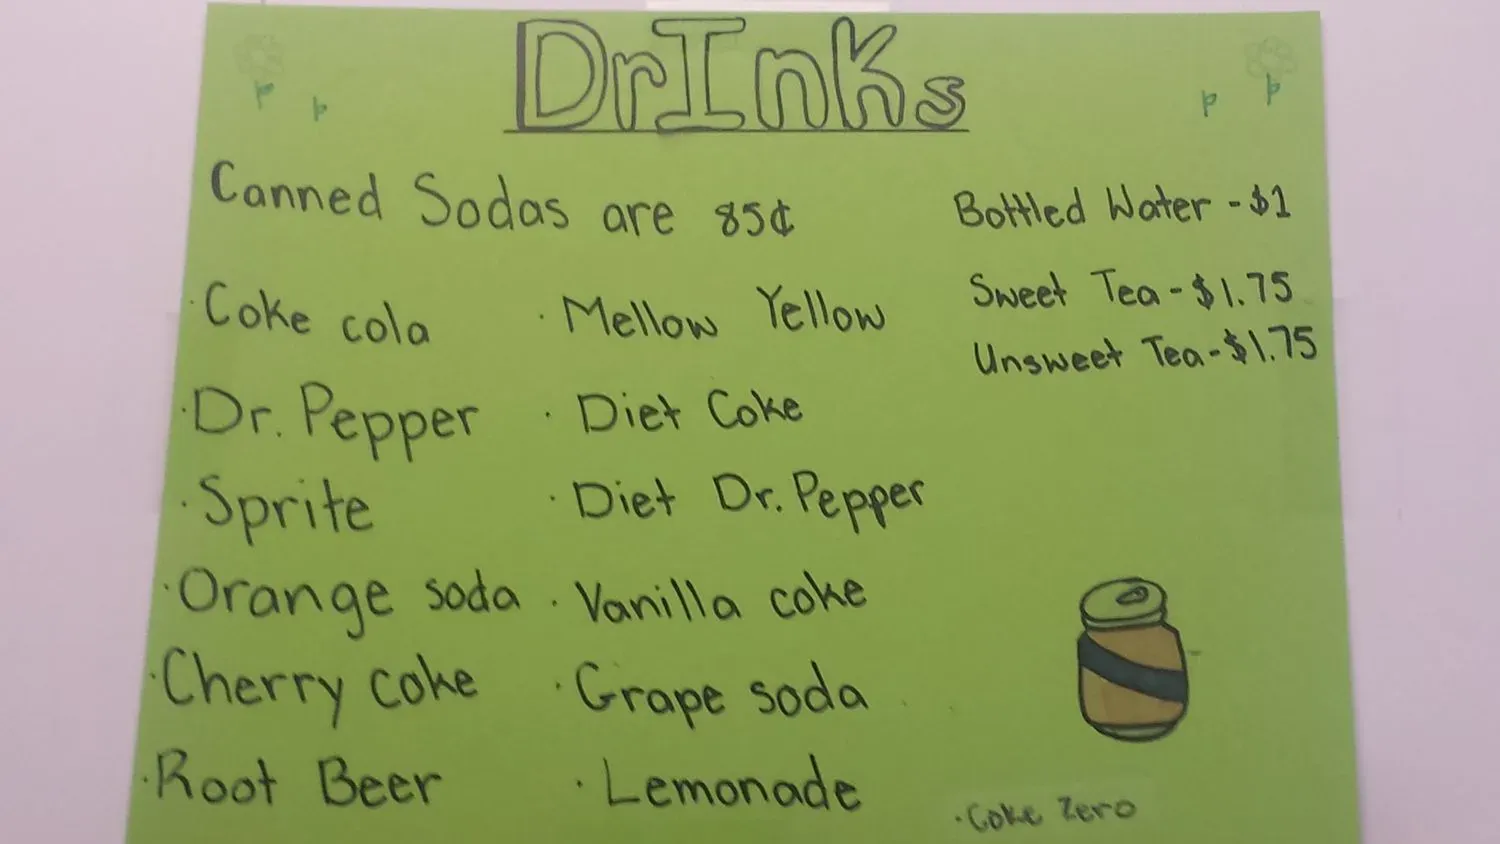 DrInks
Canned Sodas are 85¢
· Coke cola
· Dr. Pepper
· Sprite
· Orange soda
· Cherry coke
· Root Beer
· Mellow Yellow
· Diet Coke
· Diet Dr. Pepper
· Vanilla coke
· Grape soda
· Lemonade
Bottled Water - $1
Sweet Tea - $1.75
Unsweet Tea - $1.75
· Coke Zero